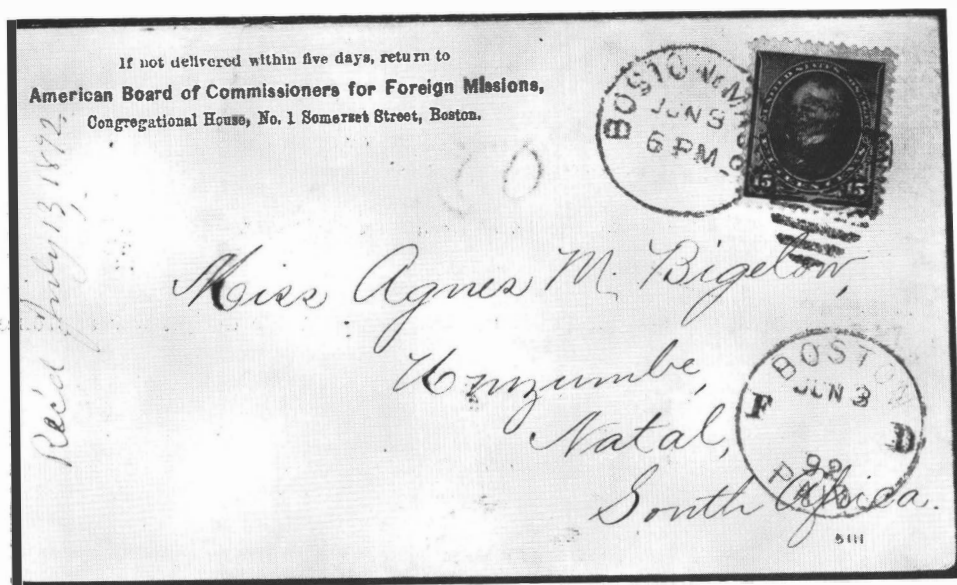 If not delivered within five days, return to
American Board of Commissioners for Foreign Missions,
Congregational House, No. 1 Somerset Street, Boston.
BOSTON MASS
JUN 3
6 PM
UNITED STATES
5 5
Rec'd July 13, 1892.
Miss Agnes M. Bigelow,
Umzumbe,
Natal,
South Africa.
BOSTON
JUN 3
F D
92
PAID
5111